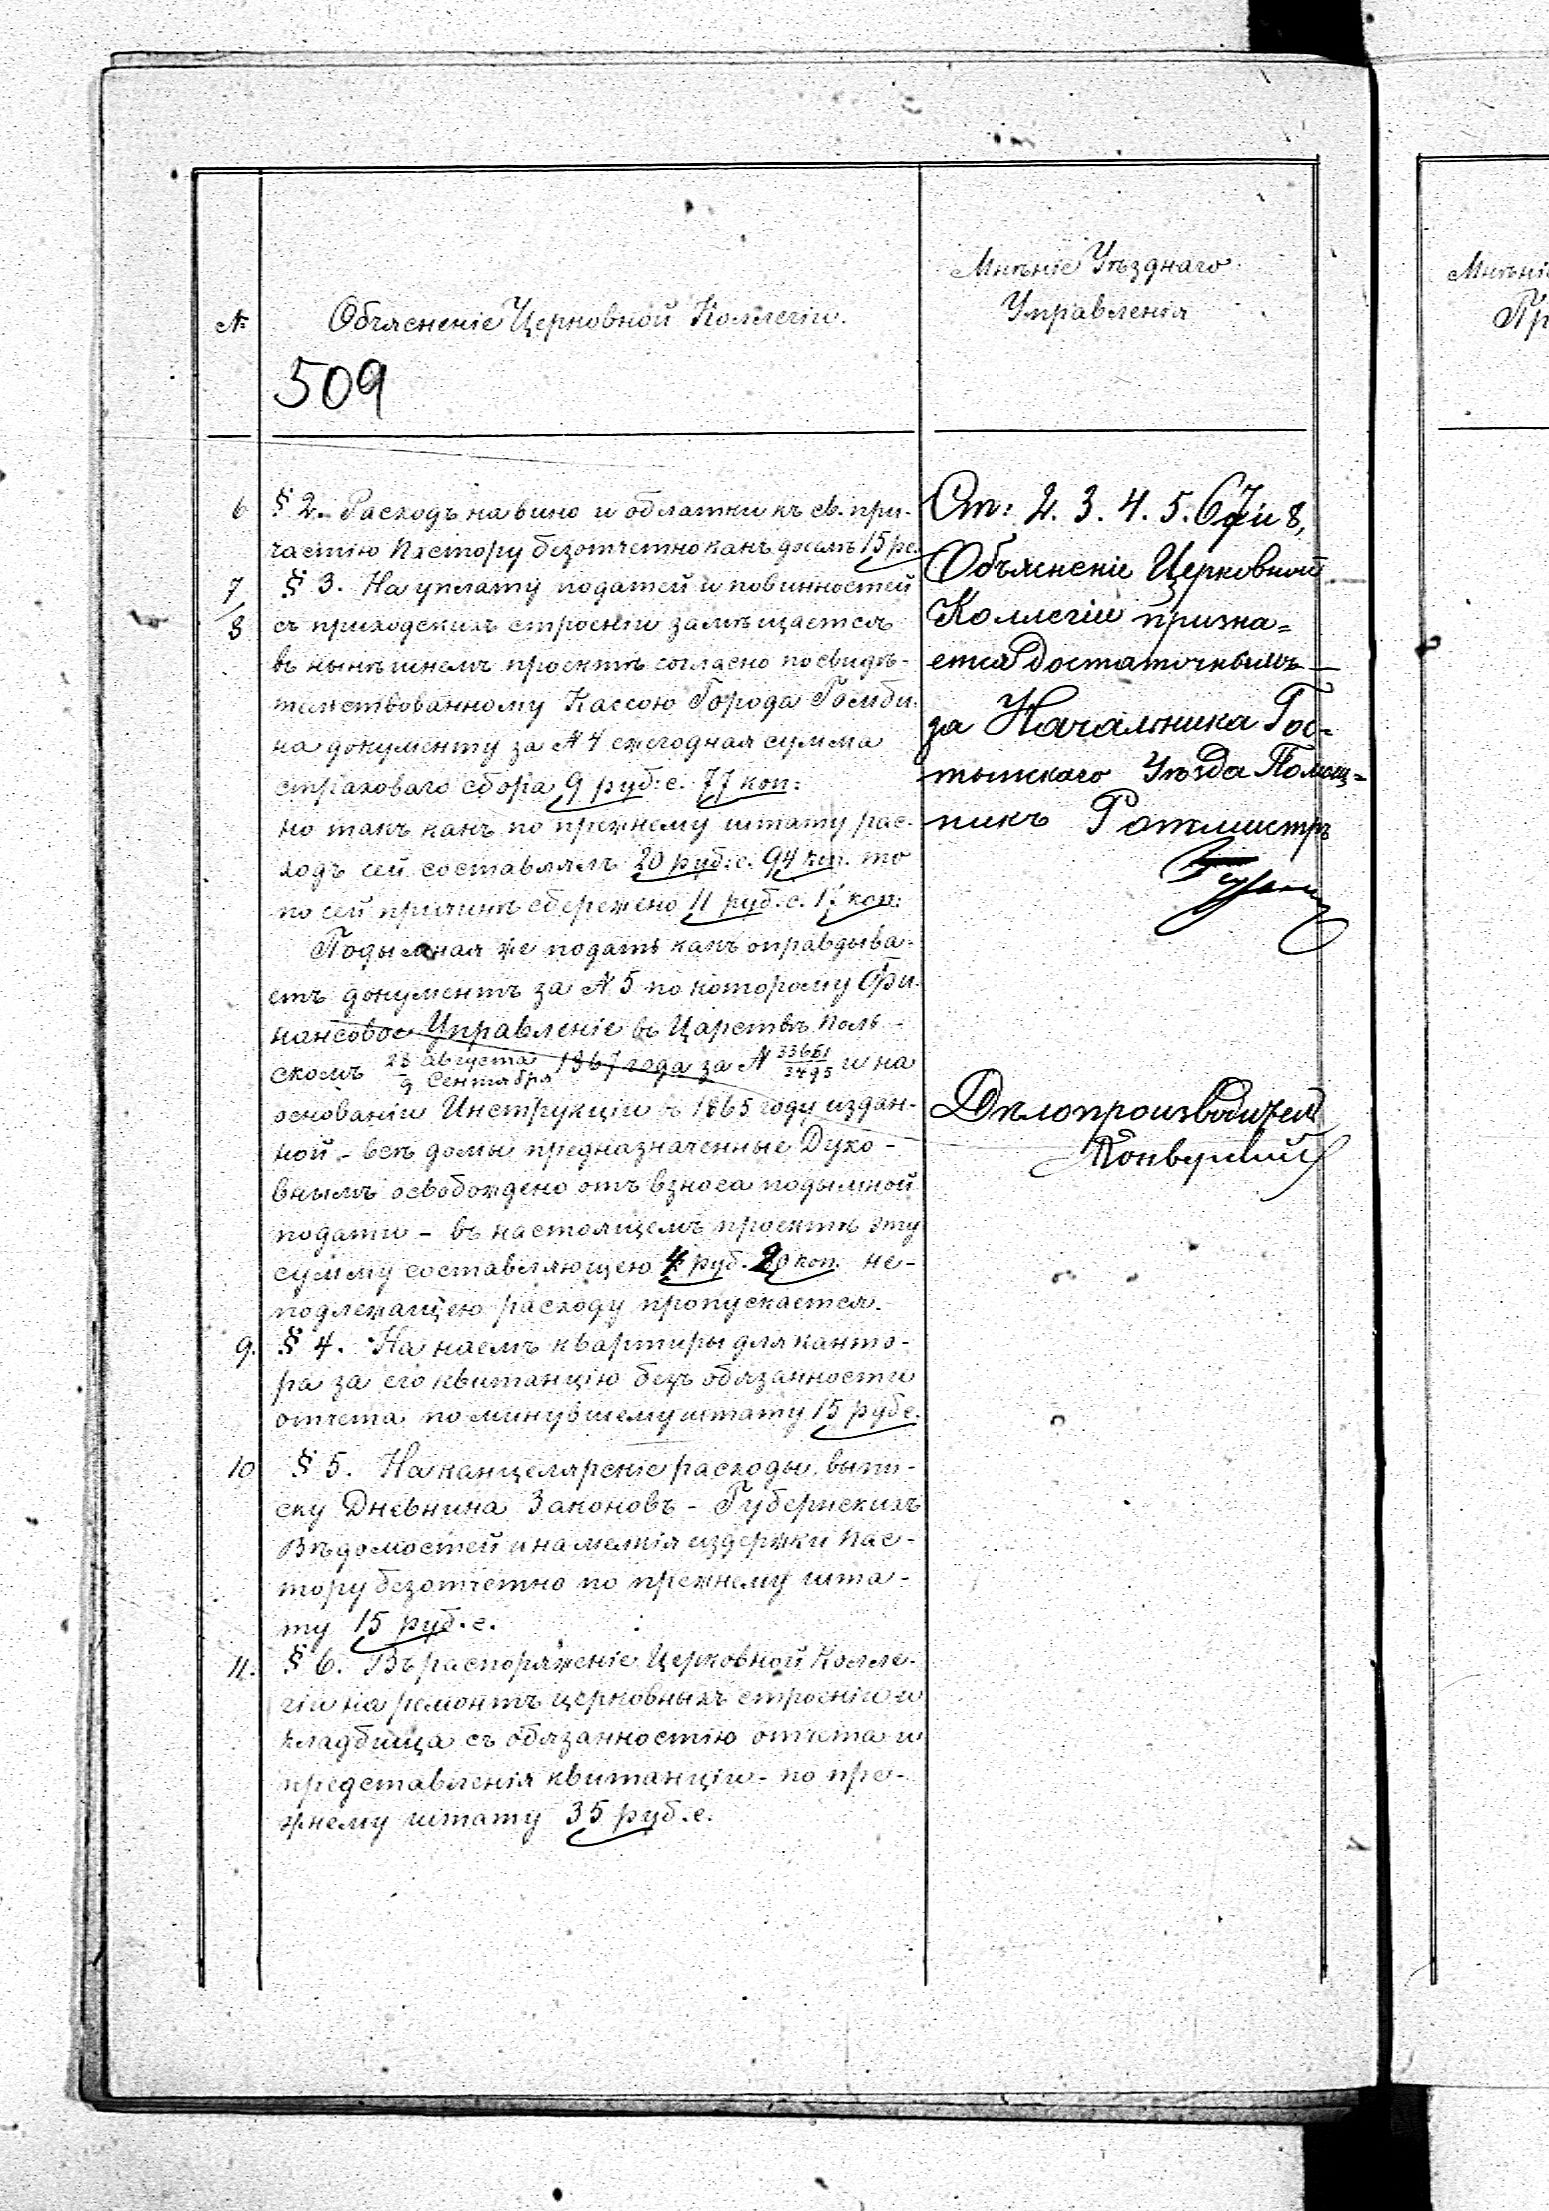 №
Объясненіе Церковной Коллегіи.
Мнѣніе Уѣзднаго
Управленія
509
6 § 2. Расходъ на вино и облатки къ св. при-
частію Пастору безотчетно какъ досель 15 р с.
7 § 3. На уплату податей и повинностей
8 съ приходскихъ строеній замѣщается
въ нынѣшнемъ проектѣ согласно посвидѣ-
тельствованному Кассою Города Гомби-
на документу за № 4 ежегодная сумма
страховаго сбора 9 руб: с. 77 коп:
но такъ какъ по прежнему штату рас-
ходъ сей составлялъ 20 руб: с. 94 коп. то
по сей причинѣ сбережено 11 руб. с. 17 коп:
Подымная же подать какъ оправдыва-
етъ документъ за № 5 по которому Фи-
нансовое Управленіе въ Царствѣ Поль-
скомъ 28 Августа / 9 Сентября 1867 года за № 33661/3495 и на
основаніи Инструкціи въ 1865 году издан-
ной - всѣ домы предназначенные Духо-
внымъ освобождено отъ взноса подымной
подати - въ настоящемъ проектѣ эту
сумму составляющею 4 руб. 20 коп. не-
подлежащею расходу пропускается.
9. § 4. На наемъ квартиры для канто-
ра за его квитанцію безъ обязанности
отчета по минувшему штату 15 руб с.
10 § 5. На канцелярскіе расходы, выпи-
ску Дневника Законовъ - Губернскихъ
Вѣдомостей и на мелкія издержки Пас-
тору безотчетно по прежнему шта-
ту 15 руб. с.
11. § 6. Въ распоряженіе Церковной Колле-
гіи на ремонтъ церковныхъ строеній и
кладбища съ обязанностію отчета и
представленія квитанціи - по пре-
жнему штату 35 руб. с.
Ст: 2. 3. 4. 5. 6 7 и 8,
Объясненіе Церковной
Коллегіи призна=
ется достаточнымъ —
за Начальника Гос-
тынскаго Уѣзда Помощ=
никъ Ротмистръ
Дѣлопроизводитель
Мнѣні
Пр